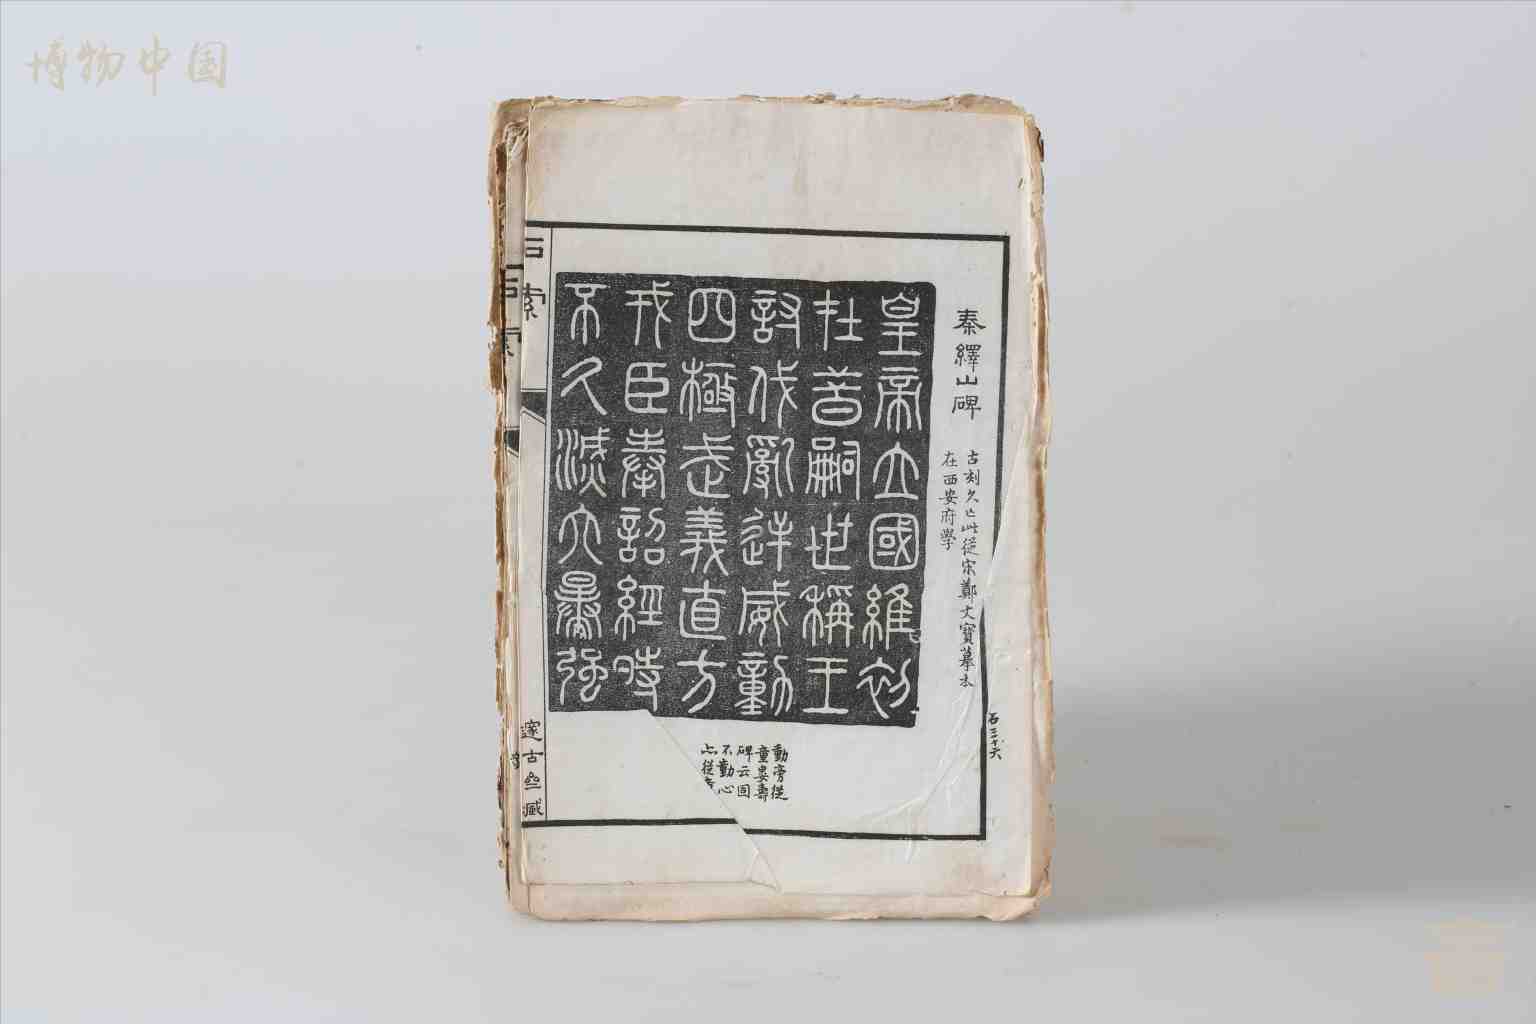 博物中国
秦繹山碑
古刻久亡此從宋鄭文寶摹本
在西安府學
皇帝立國維初
在昔嗣世稱王
討伐亂逆威動
四極武義直方
戎臣奉詔經時
不久滅六暴強
動旁從
童婁壽
碑云固
不動心
石三十六
石索
邃古
石索